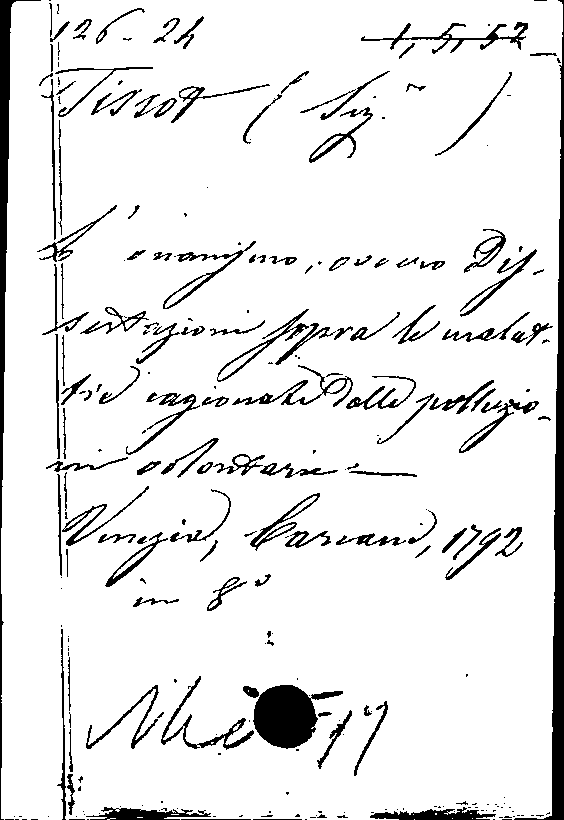 126-24 1,5,52
Tissot (Sig.r)
L'onanismo, ovvero Dis-
sertazioni sopra le malat-
tie cagionate dalle polluzio-
ni volontarie
Venezia, 1792
in 8°